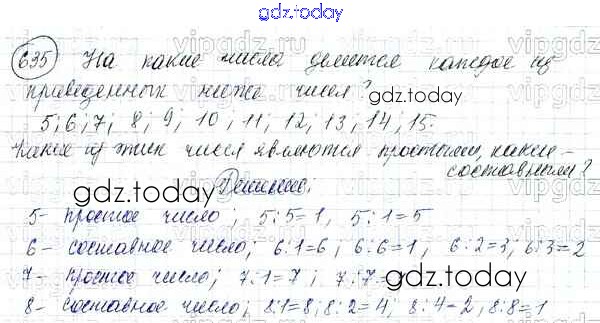 gdz.today
635 На какие числа делится каждое из
приведенных ниже чисел?
gdz.today
5; 6; 7; 8; 9; 10; 11; 12; 13; 14; 15.
Какие из этих чисел являются простыми, какие -
составными?
gdz.today
Решение.
5- простое число; 5:5=1, 5:1=5
6- составное число; 6:1=6; 6:6=1, 6:2=3; 6:3=2
7- простое число; 7:1=7; 7:7
gdz.today
8- составное число; 8:1=8; 8:2=4; 8:4=2, 8:8=1